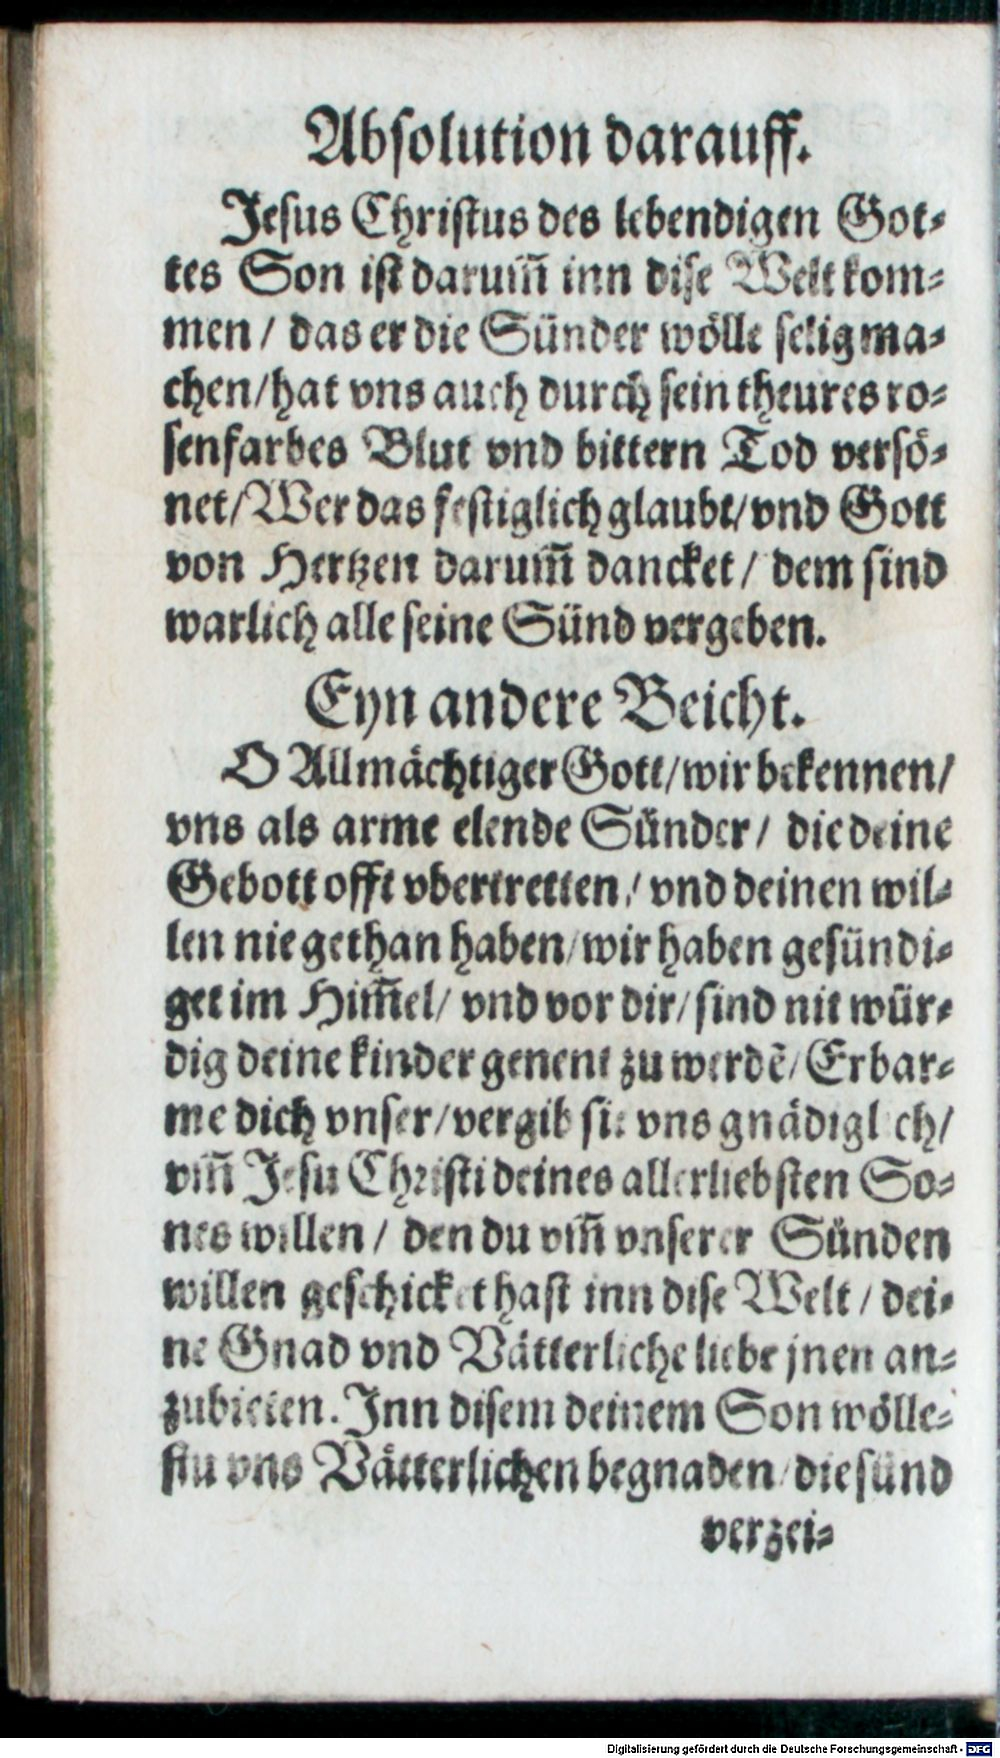 Absolution darauff.
Jesus Christus des lebendigen Got-
tes Son ist darum̃ inn dise Welt kom-
men / das er die Sünder wölle selig ma-
chen/hat vns auch durch sein theures ro-
senfarbes Blut vnd bittern Tod versö-
net/Wer das festiglich glaubt/vnd Gott
von Hertzen darum̃ dancket / dem sind
warlich alle seine Sünd vergeben.
Eyn andere Beicht.
O Allmächtiger Gott/wir bekennen/
vns als arme elende Sünder / die deine
Gebott offt vbertretten / vnd deinen wil-
len nie gethan haben/wir haben gesündi-
get im Him̃el/ vnd vor dir/ sind nit wür-
dig deine kinder genent zu werdẽ/Erbar-
me dich vnser/vergib sie vns gnädiglich/
vm̃ Jesu Christi deines allerliebsten So-
nes willen / den du vm̃ vnserer Sünden
willen geschicket hast inn dise Welt / dei-
ne Gnad vnd Vätterliche liebe jnen an-
zubieten. Inn disem deinem Son wölle-
stu vns Vätterlichen begnaden/die sünd
verzei-
Digitalisierung gefördert durch die Deutsche Forschungsgemeinschaft - DFG